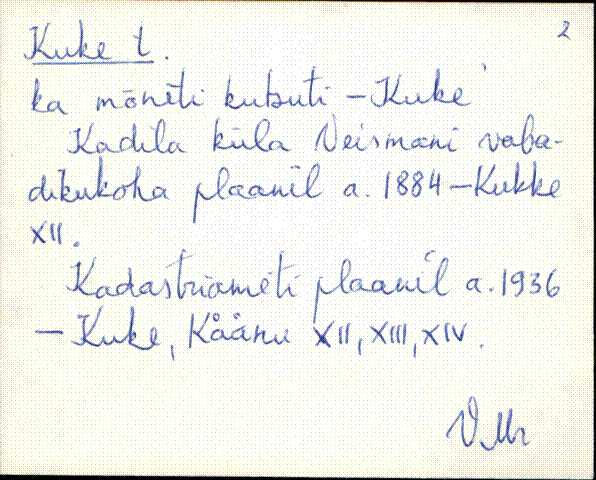 2
Kuke t.
ka mõneti kutsuti – Kuke'
Kadila küla Veismani vaba-
dikukoha plaanil a. 1884 – Kukke
XII.
Kadastriameti plaanil a. 1936
– Kuke, Kåånu XII, XIII, XIV.